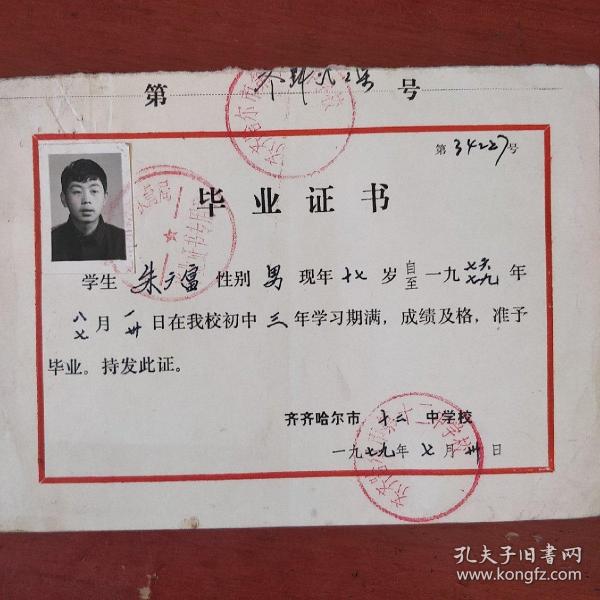 第 号
第34227号
毕业证书
学生 朱广富 性别 男 现年 十七 岁 自至 一九七六七九 年
八七 月 一卅 日在我校初中 三 年学习期满，成绩及格，准予
毕业。持发此证。
齐齐哈尔市 十二 中学校
一九七九年 七 月 卅 日
孔夫子旧书网
www.kongfz.com